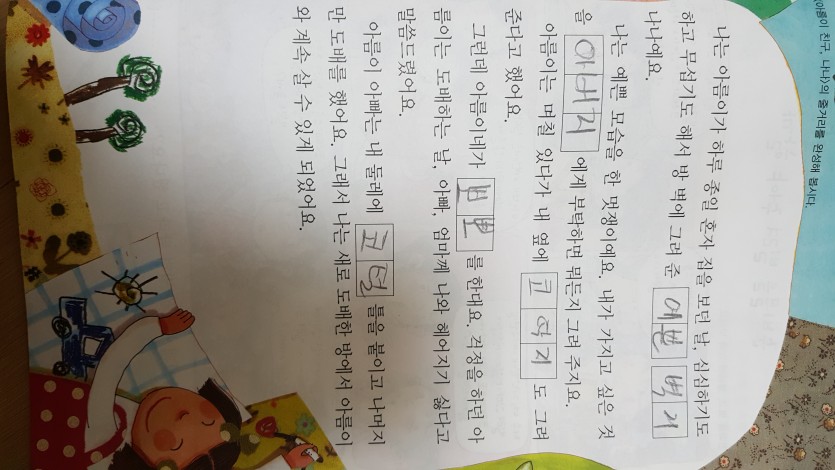 〈아름이 친구, 나나〉의 줄거리를 완성해 봅시다.
나는 아름이가 하루 종일 혼자 집을 보던 날, 심심하기도
하고 무섭기도 해서 방 벽에 그려 준
나나예요.
나는 예쁜 모습을 한 멋쟁이예요. 내가 가지고 싶은 것
을 아버지 에게 부탁하면 뭐든지 그려 주지요.
아름이는 며칠 있다가 내 옆에 도 그려
준다고 했어요.
그런데 아름이네가 를 한대요. 걱정을 하던 아
름이는 도배하는 날, 아빠, 엄마께 나와 헤어지기 싫다고
말씀드렸어요.
아름이 아빠는 내 둘레에 틀을 붙이고 나머지
만 도배를 했어요. 그래서 나는 새로 도배한 방에서 아름이
와 계속 살 수 있게 되었어요.